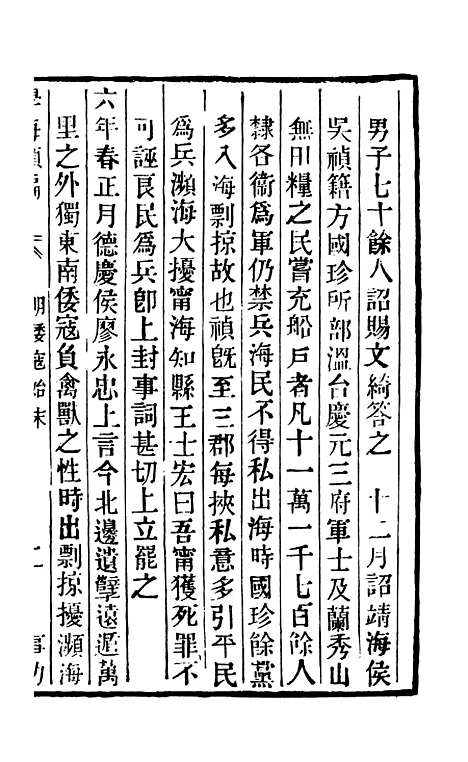 男子七十餘人詔賜文綺答之　十二月詔靖海侯
吳禎籍方國珍所部溫台慶元三府軍士及蘭秀山
無田糧之民嘗充船戶者凡十一萬一千七百餘人
隸各衛爲軍仍禁兵海民不得私出海時國珍餘黨
多入海剽掠故也禎旣至三郡每挾私意多引平民
爲兵瀕海大擾甯海知縣王士宏曰吾甯獲死罪不
可誣良民爲兵卽上封事詞甚切上立罷之
六年春正月德慶侯廖永忠上言今北邊遺孽遠遁萬
里之外獨東南倭寇負禽獸之性時出剽掠擾瀕海
學海類編　明倭寇始末